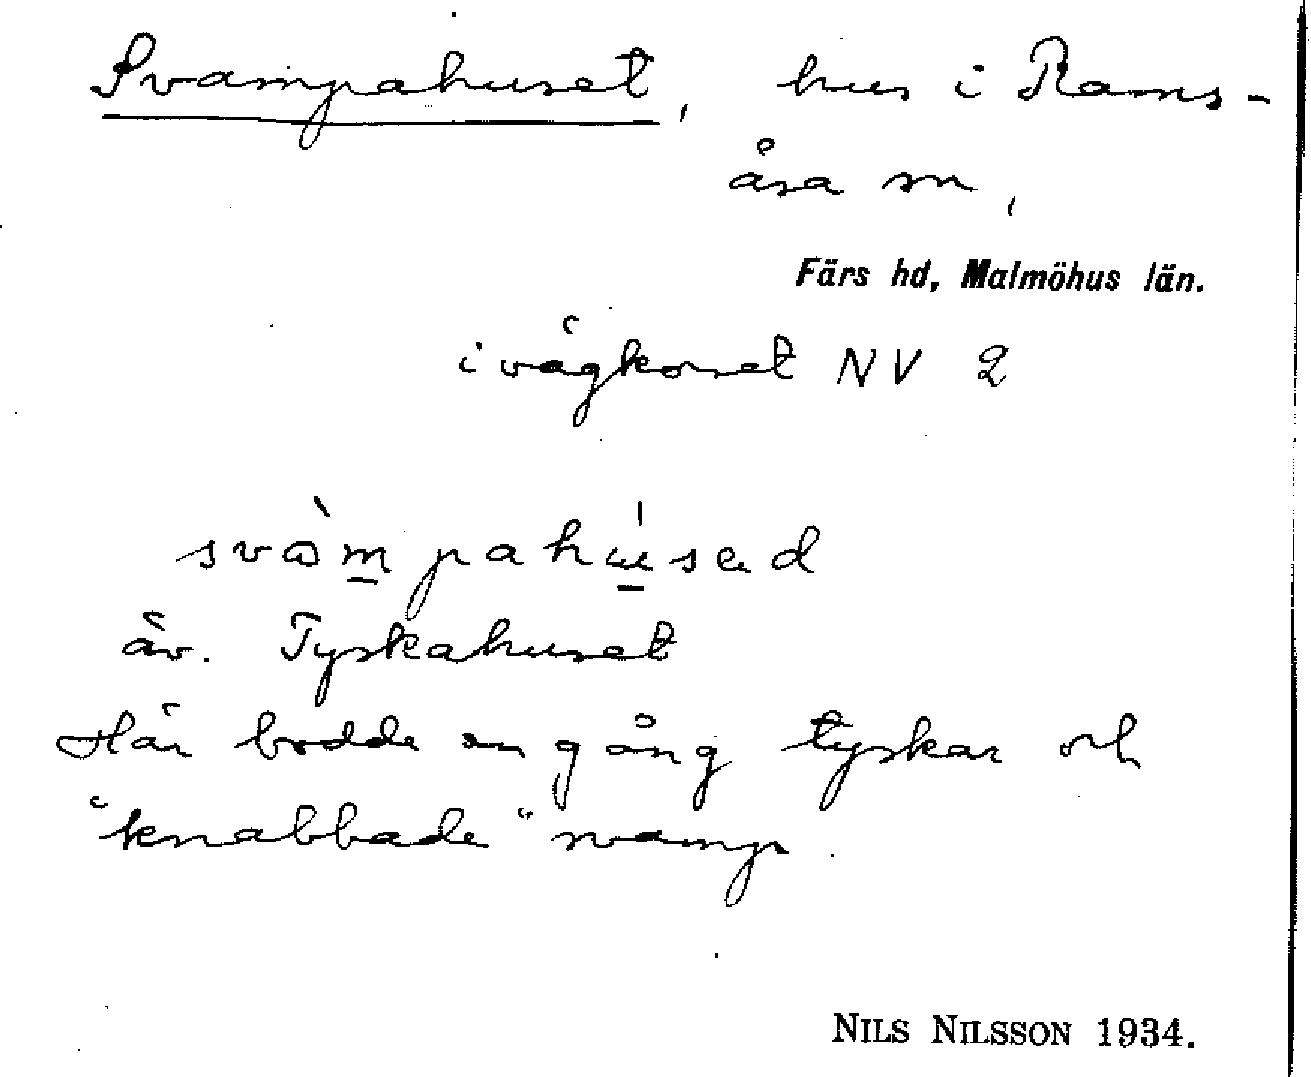 Svampahuset, hus i Rams-
åsa sn,
Färs hd, Malmöhus län.
i vägkorset NV 2
svampahused
äv. Tyskahuset
Här bodde en gång tyskar och
"knabbade" svamp.
NILS NILSSON 1934.